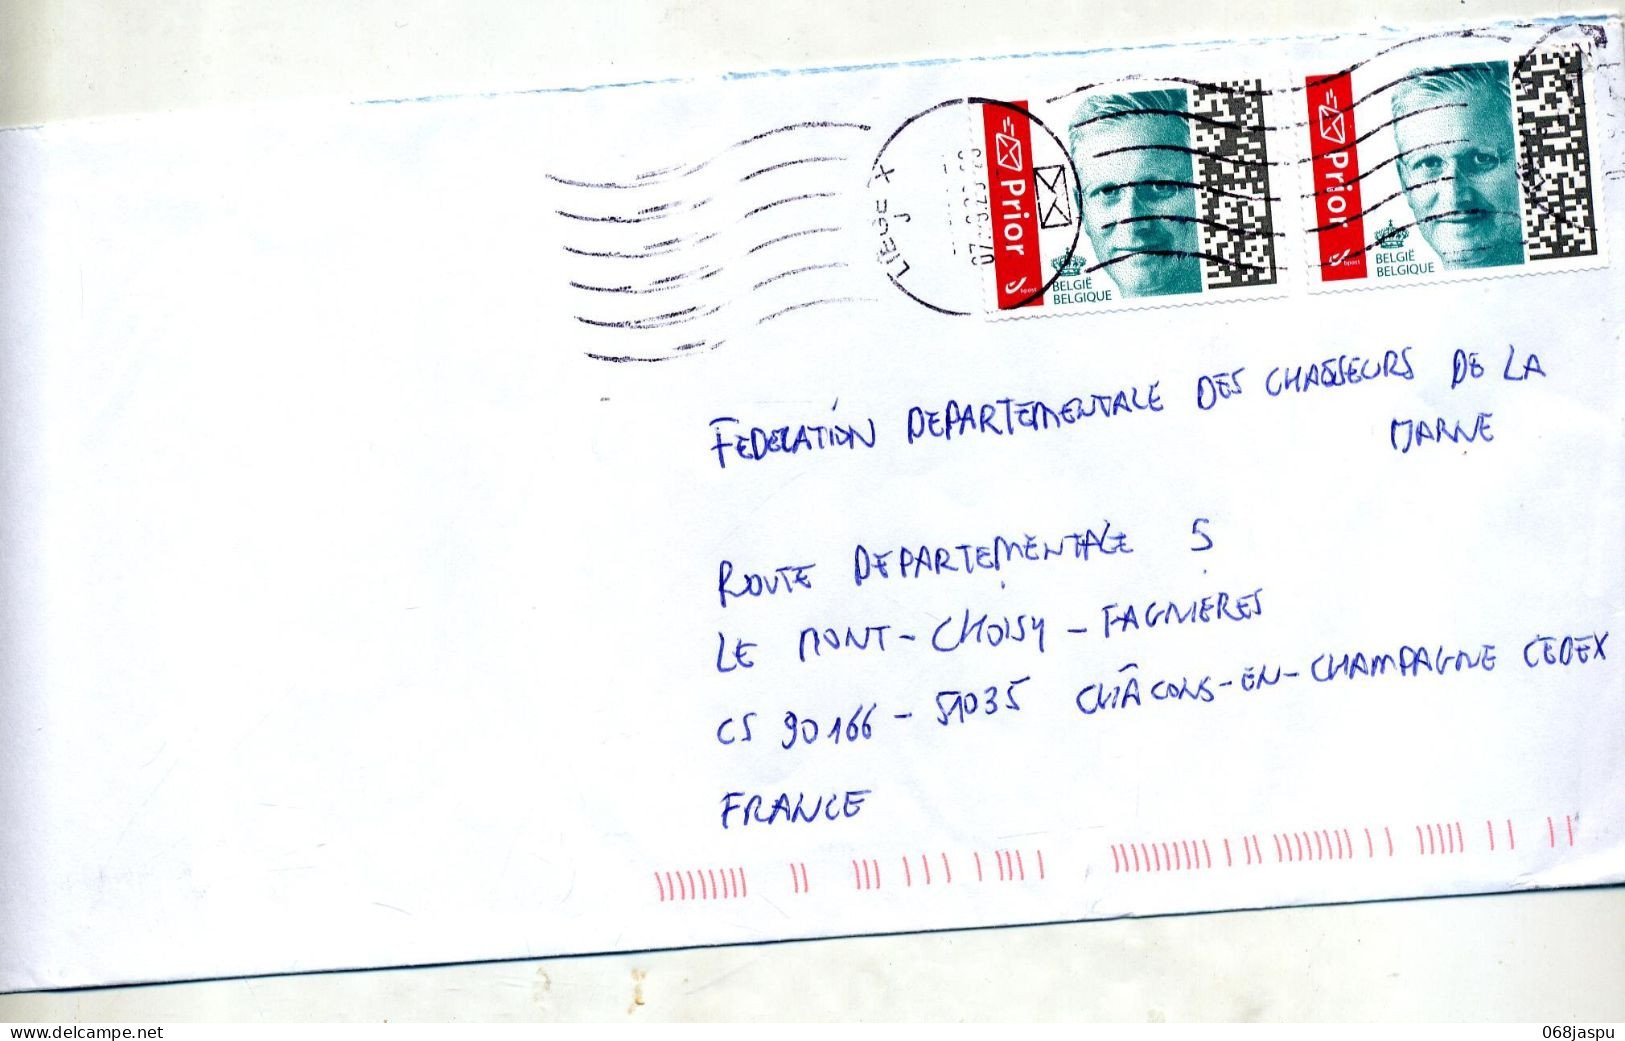 LIEGE X
J
Prior
bpost
BELGIË
BELGIQUE
Prior
bpost
BELGIË
BELGIQUE
FEDERATION DEPARTEMENTALE DES CHASSEURS DE LA
MARNE
ROUTE DEPARTEMENTALE 5
LE MONT-CHOISY-FAGNIERES
CS 90166-51035 CHÂLONS-EN-CHAMPAGNE CEDEX
FRANCE
www.delcampe.net
068jaspu